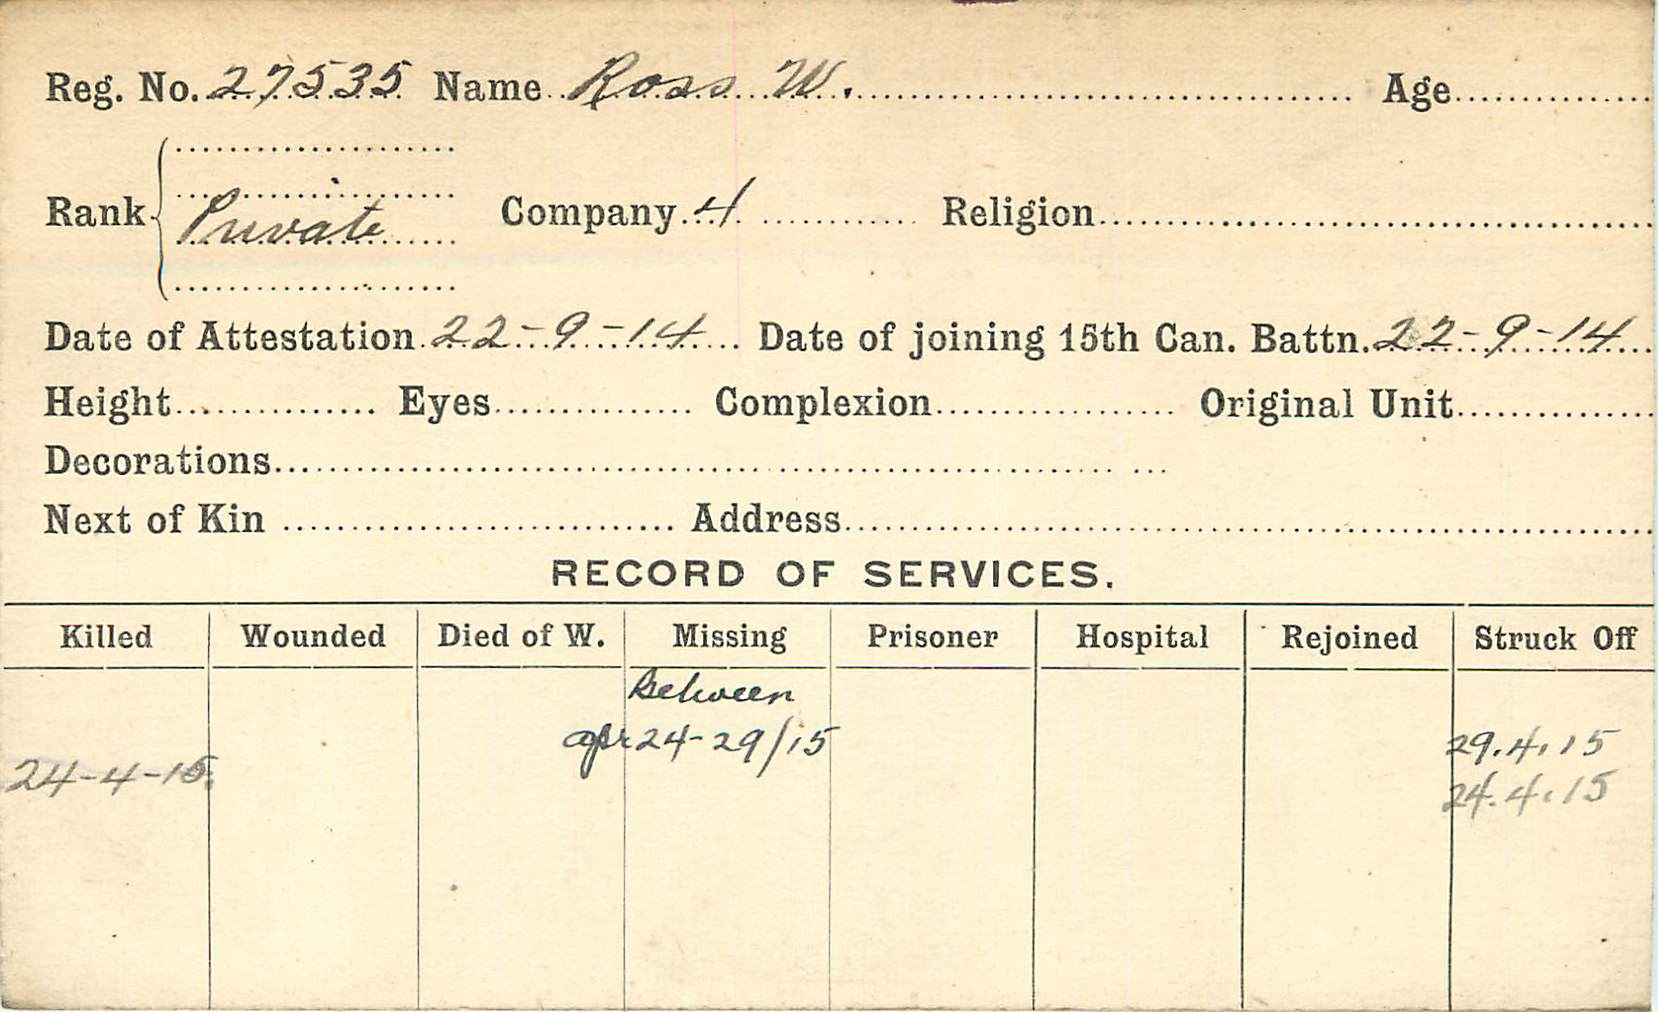 Reg. No. 27535 Name Ross W. Age
Rank Private Company 4 Religion
Date of Attestation 22-9-14 Date of joining 15th Can. Battn. 22-9-14
Height Eyes Complexion Original Unit
Decorations
Next of Kin Address
RECORD OF SERVICES.
Killed Wounded Died of W. Missing Prisoner Hospital Rejoined Struck Off
Between
apr 24-29/15 29.4.15
24-4-15. 24.4.15